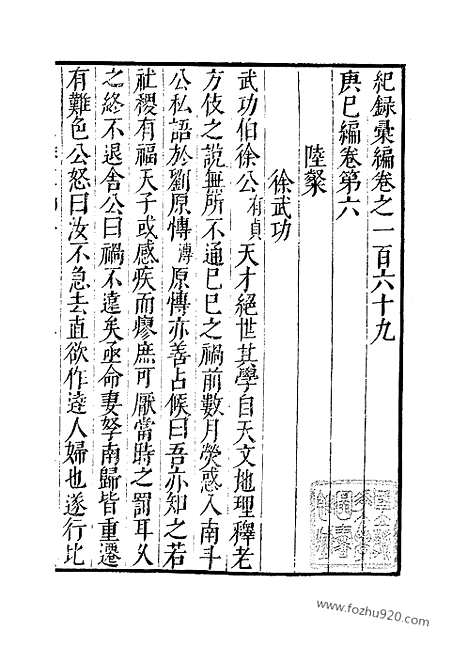 紀録彙編卷之一百六十九
庚巳編卷第六
陸粲
徐武功
武功伯徐公有貞天才絕世其學自天文地理釋老
方伎之說無所不通巳巳之禍前數月熒惑入南斗
公私語於劉原慱溥原慱亦善占候曰吾亦知之若
社稷有福天子或感疾而瘳庶可厭當時之罰耳乆
之終不退舍公曰禍不遠矣亟命妻孥南歸皆重遷
有難色公怒曰汝不急去直欲作逹人婦也遂行比
www.fozhu920.com